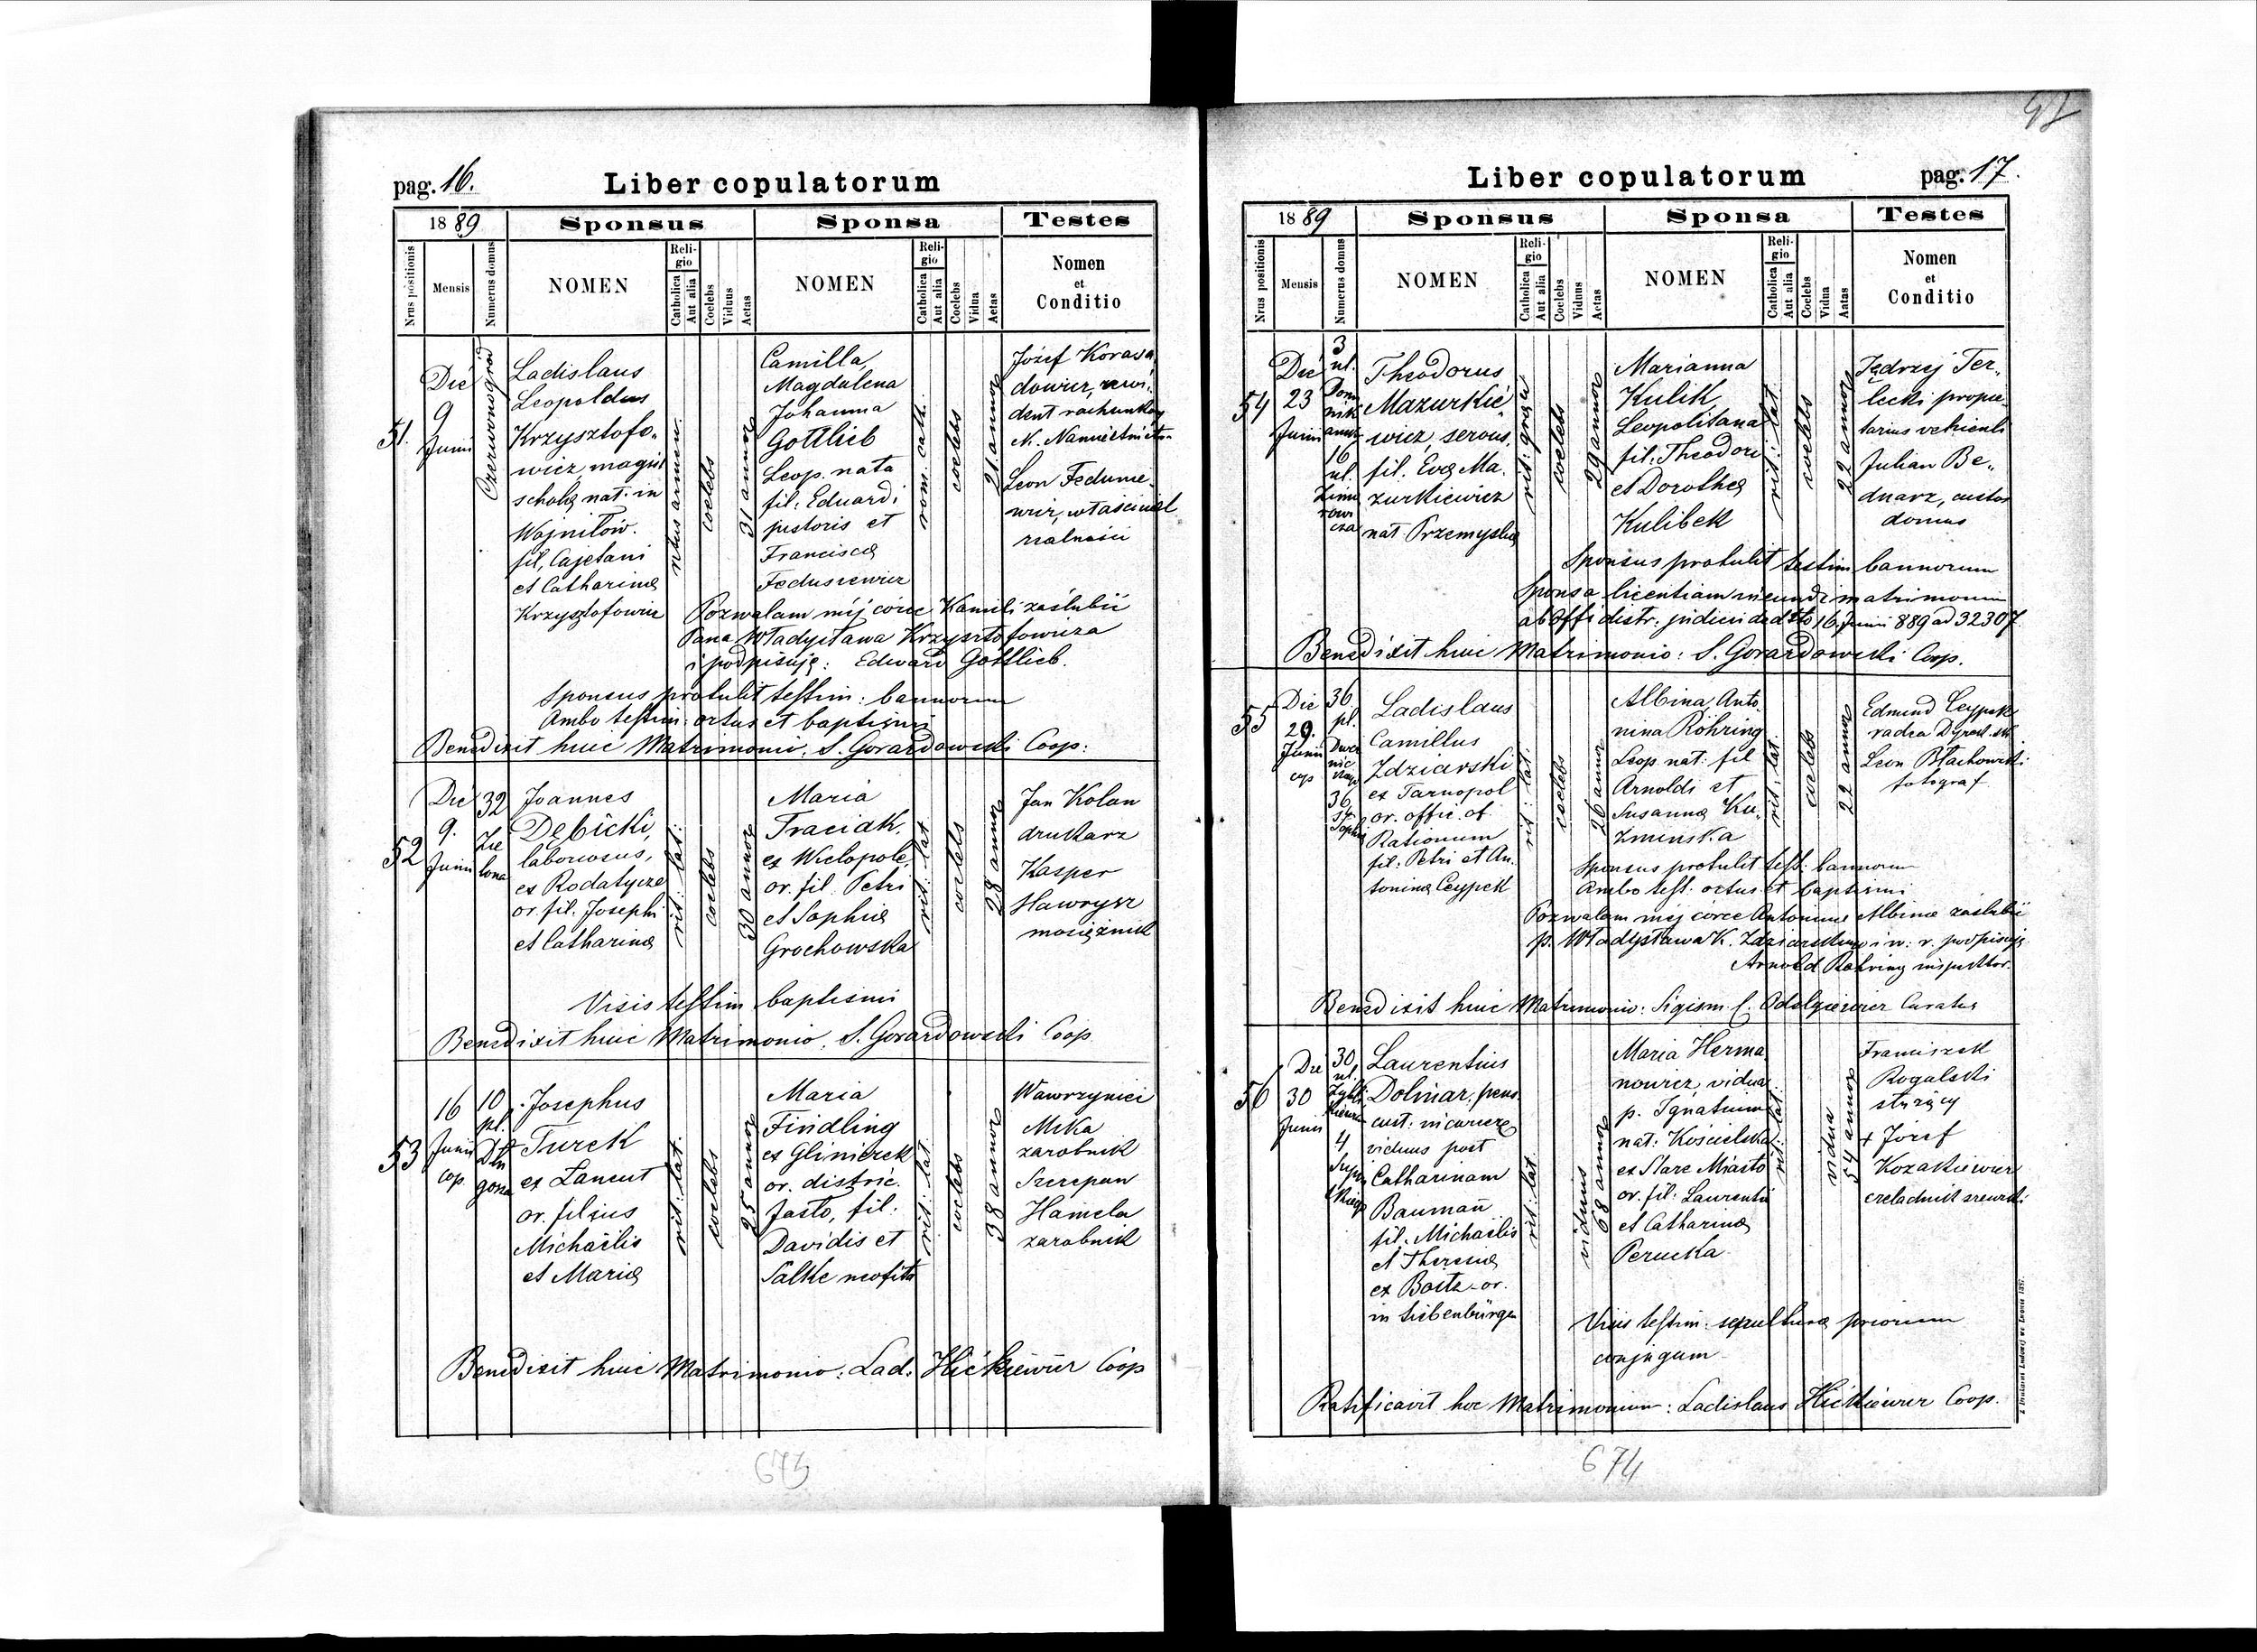 47
pag. 16.
Liber copulatorum
1889
Sponsus
Sponsa
Testes
Nrus positionis
Mensis
Numerus domus
NOMEN
Religio
Catholica
Aut alia
Coelebs
Viduus
Aetas
NOMEN
Religio
Catholica
Aut alia
Coelebs
Vidua
Aetas
Nomen
et
Conditio
51.
Die
9
Junii
Czerwonogród
Ladislaus
Leopoldus
Krzysztofo-
wicz, magist
scholæ nat. in
Wojniłów.
fil. Cajetani
et Catharinæ
Krzysztofowicz
ritus armen.
coelebs
31 annor
Camilla,
Magdalena
Johanna
Gottlieb
Leop. nata
fil: Eduardi
pistoris et
Franciscæ
Fedusiewicz
rom. cath.
coelebs
21 annor
Józef Korasa
dowicz, rewi-
dent rachunkow
N. Namiestnict-
Leon Fedume-
wicz, właściciel
realności
Pozwalam mej córce Kamili zaślubić
Pana Władysława Krzysztofowicza
i podpisuję: Edward Gottlieb.
Sponsus protulit testim: bannorum
Ambo testim: ortus et baptismi
Benedixit huic Matrimonio. S. Gorardowski Coop:
52
Die
9.
Junii
32
Zie
lona
Joannes
Dębicki,
laboriosus,
ex Rodatycze
or. fil. Josephi
et Catharinæ
rit: lat:
coelebs
30 annor
Maria
Traciak.
ex Wielopole,
or. fil. Petri
et Sophiæ
Grochowska
rit: lat
coelebs
28 annor
Jan Kolan
drukarz
Kasper
Hawrysz
mosiężnik
Visis testim baptismi
Benedixit huic Matrimonio. S. Gorardowski Coop
53
16
Junii
cop.
10
pl.
Dłu
gosza
Josephus
Turek
ex Lancut
or. filius
Michaëlis
et Mariæ
rit: lat.
coelebs
25 annor
Maria
Findling
ex Gliniczek
or. distric.
Jasło, fil:
Davidis et
Salke neofita
rit: lat.
coelebs
38 annor
Wawrzyniec
Mika
zarobnik
Szczepan
Hamela
zarobnik
Benedixit huic Matrimonio: Lad. Hićkiewicz Coop
673
Liber copulatorum
pag. 17.
1889
Sponsus
Sponsa
Testes
Nrus positionis
Mensis
Numerus domus
NOMEN
Religio
Catholica
Aut alia
Coelebs
Viduus
Aetas
NOMEN
Religio
Catholica
Aut alia
Coelebs
Vidua
Aetas
Nomen
et
Conditio
54
Die
23
Junii
3
ul.
Domi
nik
16
ul.
Zimo
rowi
cza
Theodorus
Mazurkie-
wicz, servus,
fil. Evæ Ma-
zurkiewicz
nat Przemyślu
coelebs
29 annor
Marianna
Kulik,
Leopolitana
fil: Theodori
et Dorotheæ
Kulibek
rit: lat.
coelebs
22 annor
Jędrzej Ter-
lecki proprie-
tarius vehiculi
Julian Be-
dnarz, custos
domus
Sponsus protulit testim bannorum
Sponsa licentiam ineundi matrimonii
ab Offi distr: judicii dedtto 16. Junii 889 ad 32307
Benedixit huic Matrimonio: S. Gorardowski Coop.
55
Die
29.
Junii
cop
36.
pl.
36
st.
Sophia
Ladislaus
Camillus
Zdziarski
ex Tarnopol
or. offic. of.
Rationum
fil: Petri et An-
toninæ Ceypek
rit: lat.
coelebs
26 annor
Albina, Anto-
nina Röhring
Leop. nat: fil
Arnoldi et
Susanna Ku-
zminska
rit: lat.
coelebs
22 annor
Edmund Ceypek
radca Dyrek. sk.
Leon Błachowski
fotograf
Sponsus protulit test: bannorum
Ambo test: ortus et baptismi
Pozwalam mej córce Antoninie Albinie zaślubić
p. Władysława K. Zdziarskiego i w: r. podpisuję
Arnold Röhring inspektor.
Benedixit huic Matrimonio: Sigism C. Odelgiewicz Curatus
56
Die
30
Junii
30
ul.
Zybli
kiewi
4
Supin
skiego
Laurentius
Dolinar, pens.
cust: incarcer.
viduus post
Catharinam
Baumañ
fil. Michaëlis
et Theresiæ
ex Boitz or.
in Siebenbürgen
rit: lat
viduus
68 annor
Maria Herma
nowicz, vidua
p. Ignatium
nat: Kościelska
ex Stare Miasto
or. fil: Laurentii
et Catharinæ
Perucka
rit: lat
vidua
54 annor
Franciszek
Rogalski
stużący
+ Józef
Kozakiewicz
czeladnik szewski
Visis testim: sepulturæ priorum
conjugum
Ratificavit hoc Matrimonium: Ladislaus Hićkiewicz Coop.
674